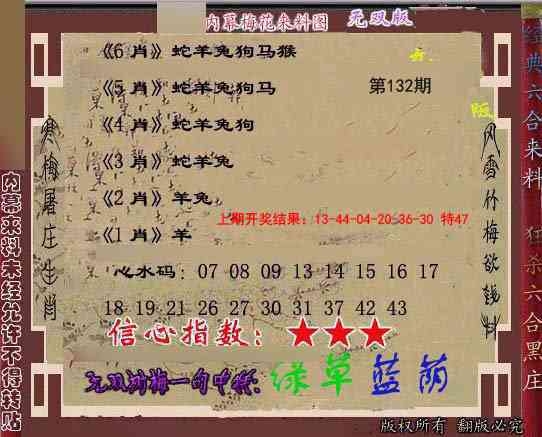 内幕梅花来料图 无双版
《6 肖》蛇羊兔狗马猴
《5 肖》蛇羊兔狗马 第132期
《4 肖》蛇羊兔狗
《3 肖》蛇羊兔
《2 肖》羊兔
上期开奖结果：13-44-04-20-36-30 特47
《1 肖》羊
心水码：07 08 09 13 14 15 16 17
18 19 21 26 27 30 31 37 42 43
信心指数：★★★
无双浏梅一句中特：绿草蓝荫
寒梅屠庄生肖
风雪竹梅欲钱料
内幕来料未经允许不得转贴
经典六合来料 狂杀六合黑庄
版权所有 翻版必究